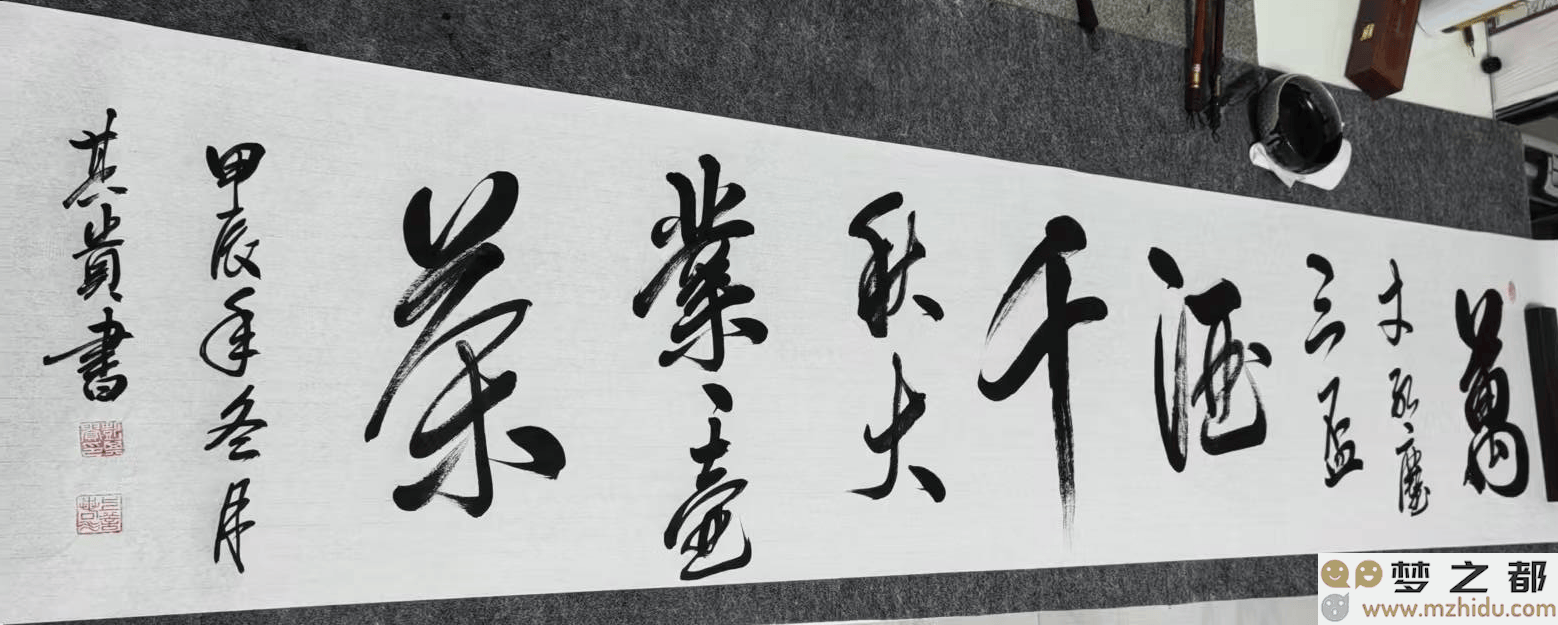 萬
丈紅塵
三盃
酒
千
秋大
業一壺
茶
甲辰年冬月
其貴書
梦之都
www.mzhidu.com